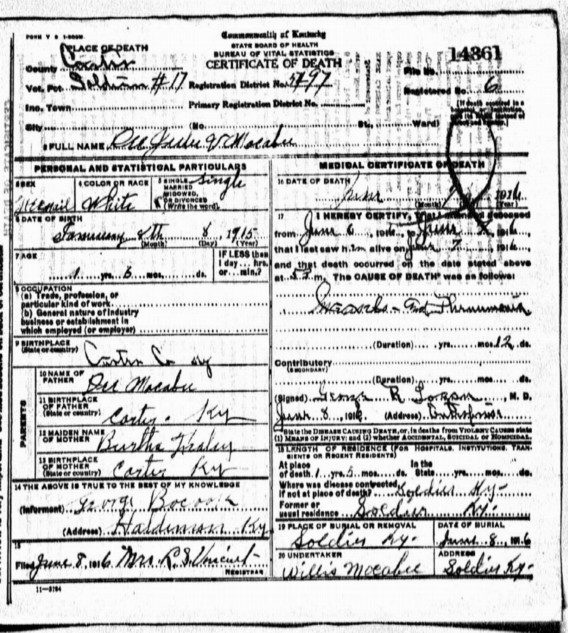 FORM V S 1-500M.
Commonwealth of Kentucky
STATE BOARD OF HEALTH
BUREAU OF VITAL STATISTICS
CERTIFICATE OF DEATH
14861
File No.
1 PLACE OF DEATH
County Carter
Vot. Pct. Soldier #17 Registration District No. 5197 Registered No. 6
Inc. Town Primary Registration District No.
City (No. St., Ward)
2 FULL NAME Macabee
PERSONAL AND STATISTICAL PARTICULARS
3 SEX 4 COLOR OR RACE White 5 SINGLE MARRIED WIDOWED, OR DIVORCED (Write the word) Single
6 DATE OF BIRTH
January 8th 8, 1915
(Month) (Day) (Year)
7 AGE IF LESS than 1 day... hrs. or... min.?
1 yrs. 5 mos. ds.
8 OCCUPATION
(a) Trade, profession, or particular kind of work
(b) General nature of industry business or establishment in which employed (or employer)
9 BIRTHPLACE (State or country) Carter Co Ky
PARENTS
10 NAME OF FATHER Macabee
11 BIRTHPLACE OF FATHER (State or country) Carter Ky
12 MAIDEN NAME OF MOTHER Bertha
13 BIRTHPLACE OF MOTHER (State or country) Carter Ky
14 THE ABOVE IS TRUE TO THE BEST OF MY KNOWLEDGE
(Informant) George Bocook
(Address) Haldeman Ky.
15
Filed June 8, 1916 Mrs R. S. Vincent
REGISTRAR
11-3194
MEDICAL CERTIFICATE OF DEATH
16 DATE OF DEATH
June 7 1916
(Month) (Day)
17 I HEREBY CERTIFY, That I attended deceased
from June 6, 191 to June 1916
that I last saw him alive on June 7, 1916
and that death occurred on the date stated above
at 5 P. m. The CAUSE OF DEATH* was as follows:
Measles - Pneumonia
(Duration) yrs. mos. 12 ds.
Contributory
(SECONDARY)
(Duration) yrs. mos. ds.
(Signed) George R. M. D.
June 8, 1916 (Address)
*State the DISEASE CAUSING DEATH, or, in deaths from VIOLENT CAUSES state
(1) MEANS OF INJURY; and (2) whether ACCIDENTAL, SUICIDAL or HOMICIDAL.
18 LENGTH OF RESIDENCE (FOR HOSPITALS, INSTITUTIONS, TRANSIENTS OR RECENT RESIDENTS)
At place of death 1 yrs. 5 mos. ds. In the State yrs. mos. ds.
Where was disease contracted if not at place of death? Soldier Ky-
Former or usual residence Soldier Ky-
19 PLACE OF BURIAL OR REMOVAL DATE OF BURIAL
Soldier Ky- June 8, 1916
20 UNDERTAKER ADDRESS
Willis Macabee Soldier Ky-